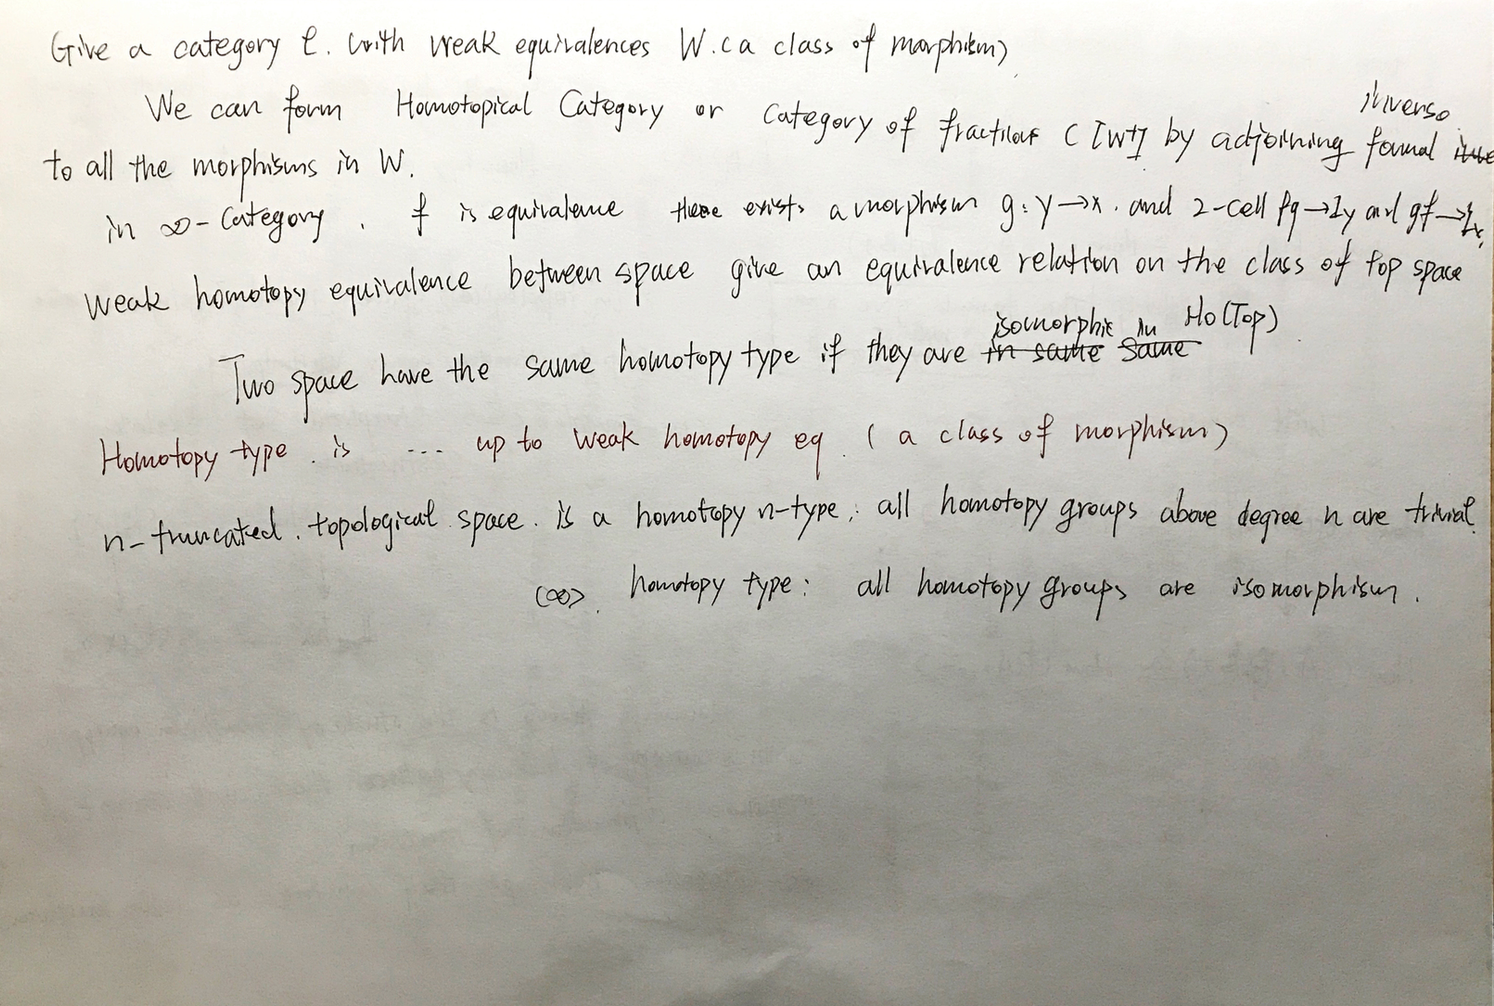 Give a category C. with weak equivalences W. (a class of morphism)
We can form Homotopical Category or Category of fractions C [W⁻¹] by adjoining formal inverse
to all the morphisms in W.
in ∞-Category. f is equivalence there exists a morphism g: y→x. and 2-cell fg→1y and gf→1x,
weak homotopy equivalence between space give an equivalence relation on the class of top space
Two space have the same homotopy type if they are in same same isomorphic in Ho(Top)
Homotopy type. is ... up to weak homotopy eq. (a class of morphism)
n-truncated. topological space. is a homotopy n-type: all homotopy groups above degree n are trivial.
(∞). homotopy type: all homotopy groups are isomorphism.